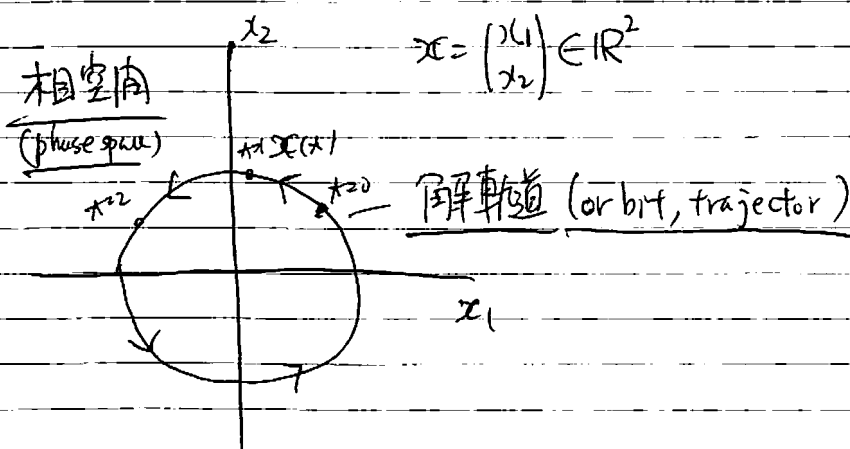 x₂
x = (x₁ x₂) ∈ ℝ²
相空间
(phase space)
t=1 x(t)
t=0
t=2
解軌道 (orbit, trajector)
x₁